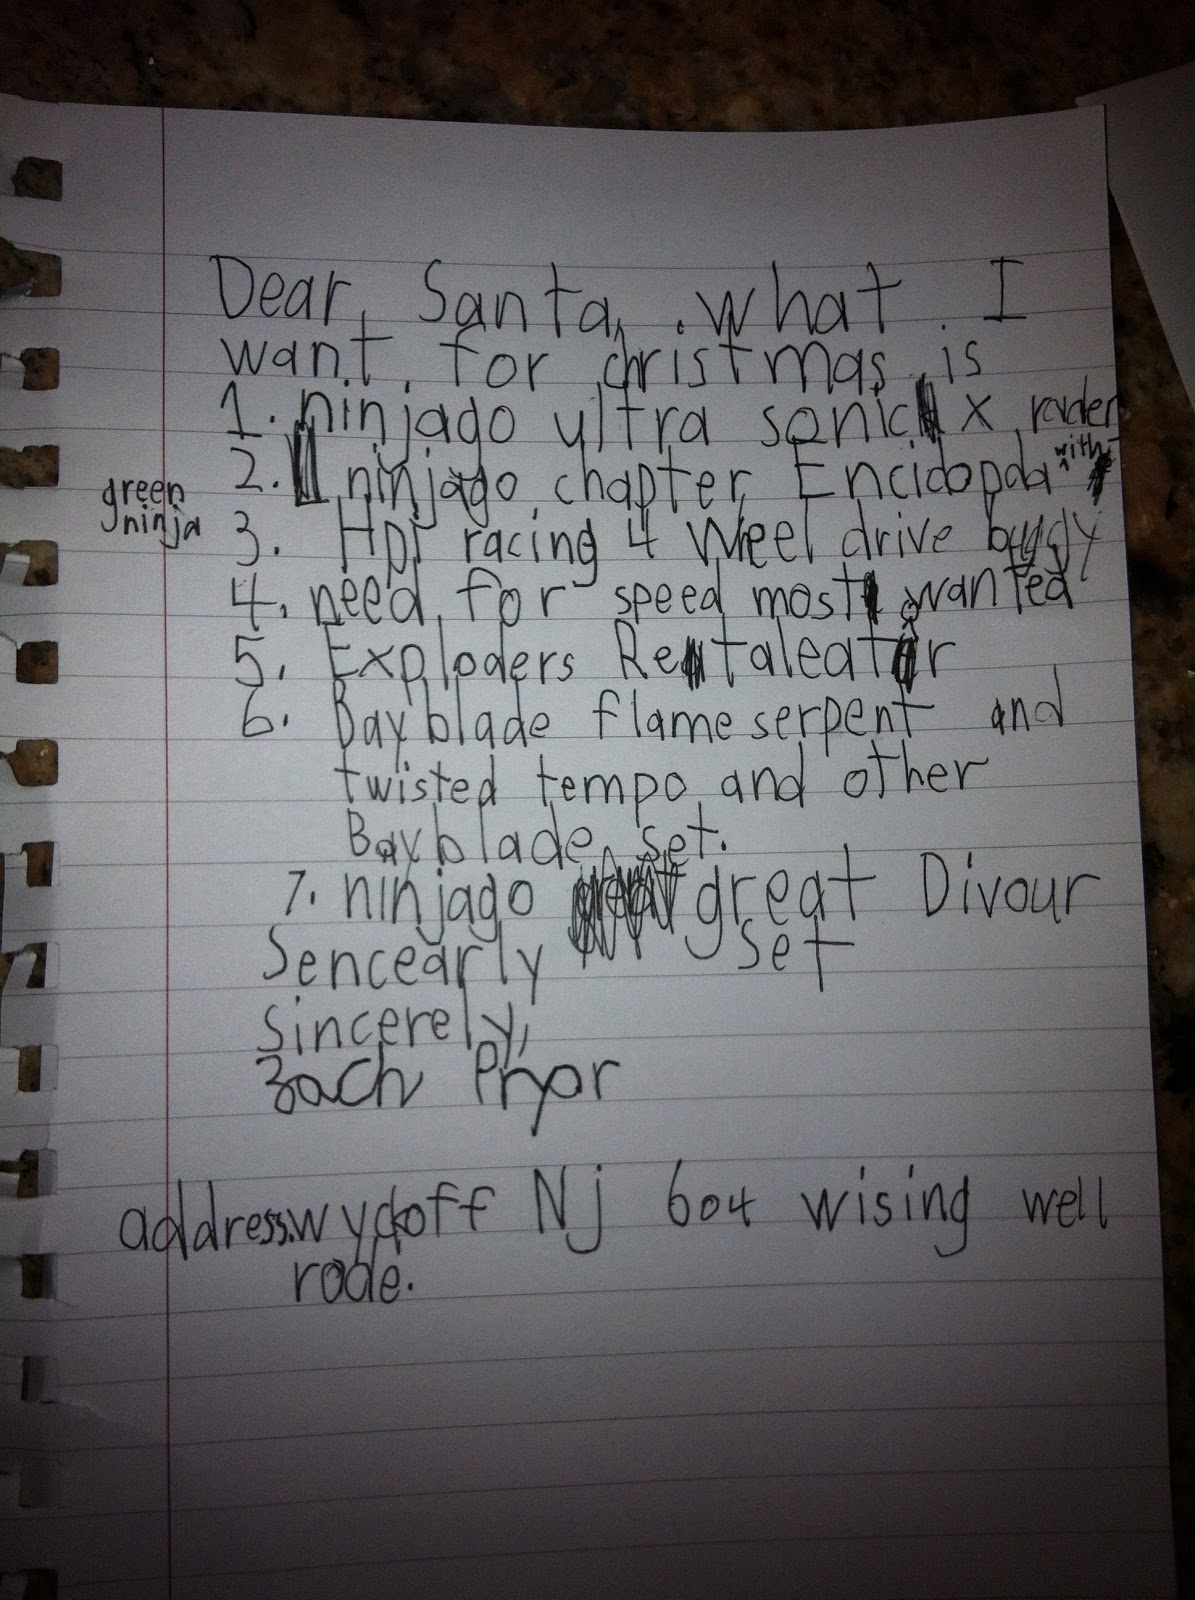 Dear, Santa, .what. I
want. for christmas is
1. ninjago ultra sonic x raider
2. ninjago chapter Encidopda with
green
ninja
3. Hpi racing 4 wheel drive buggy
4. need for speed most wanted
5. Exploders Retaleator
6. Bayblade flame serpent and
twisted tempo and other
Bayblade set.
7. ninjago great Divour
Sencearly set
Sincerely,
Zach Pryor
address.wyckoff Nj 604 wising well
rode.